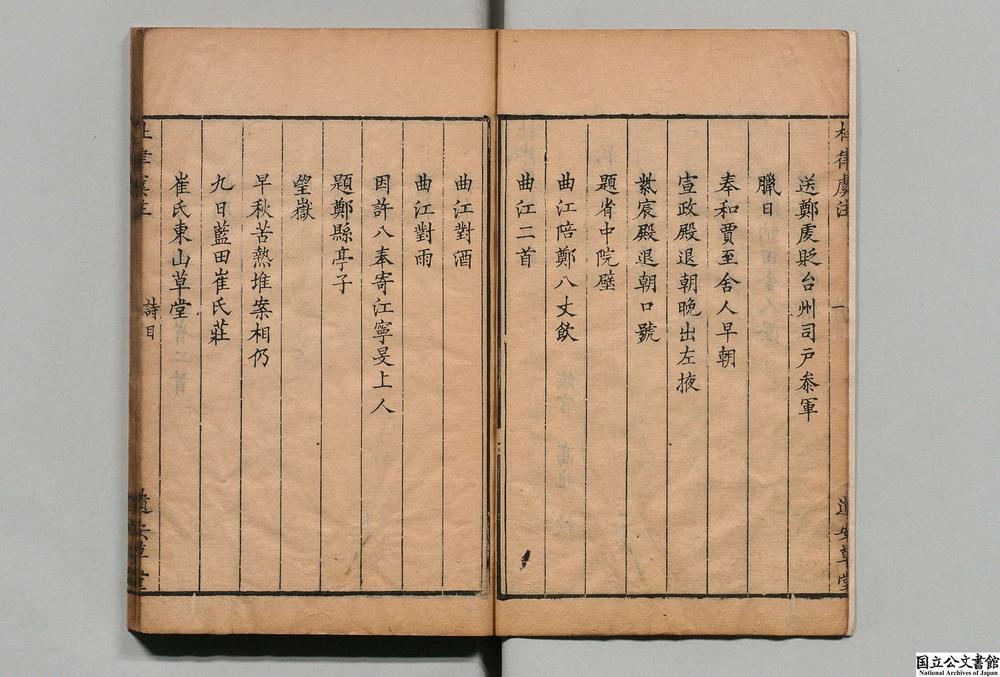 杜律虞注
一
遺安草堂
送鄭虔貶台州司戶叅軍
臘日
奉和賈至舍人早朝
宣政殿退朝晚出左掖
紫宸殿退朝口號
題省中院壁
曲江陪鄭八丈飲
曲江二首
曲江對酒
曲江對雨
因許八奉寄江寧旻上人
題鄭縣亭子
望嶽
早秋苦熱堆案相仍
九日藍田崔氏莊
崔氏東山草堂
杜律虞注
詩目
遺安草堂
国立公文書館
National Archives of Japan